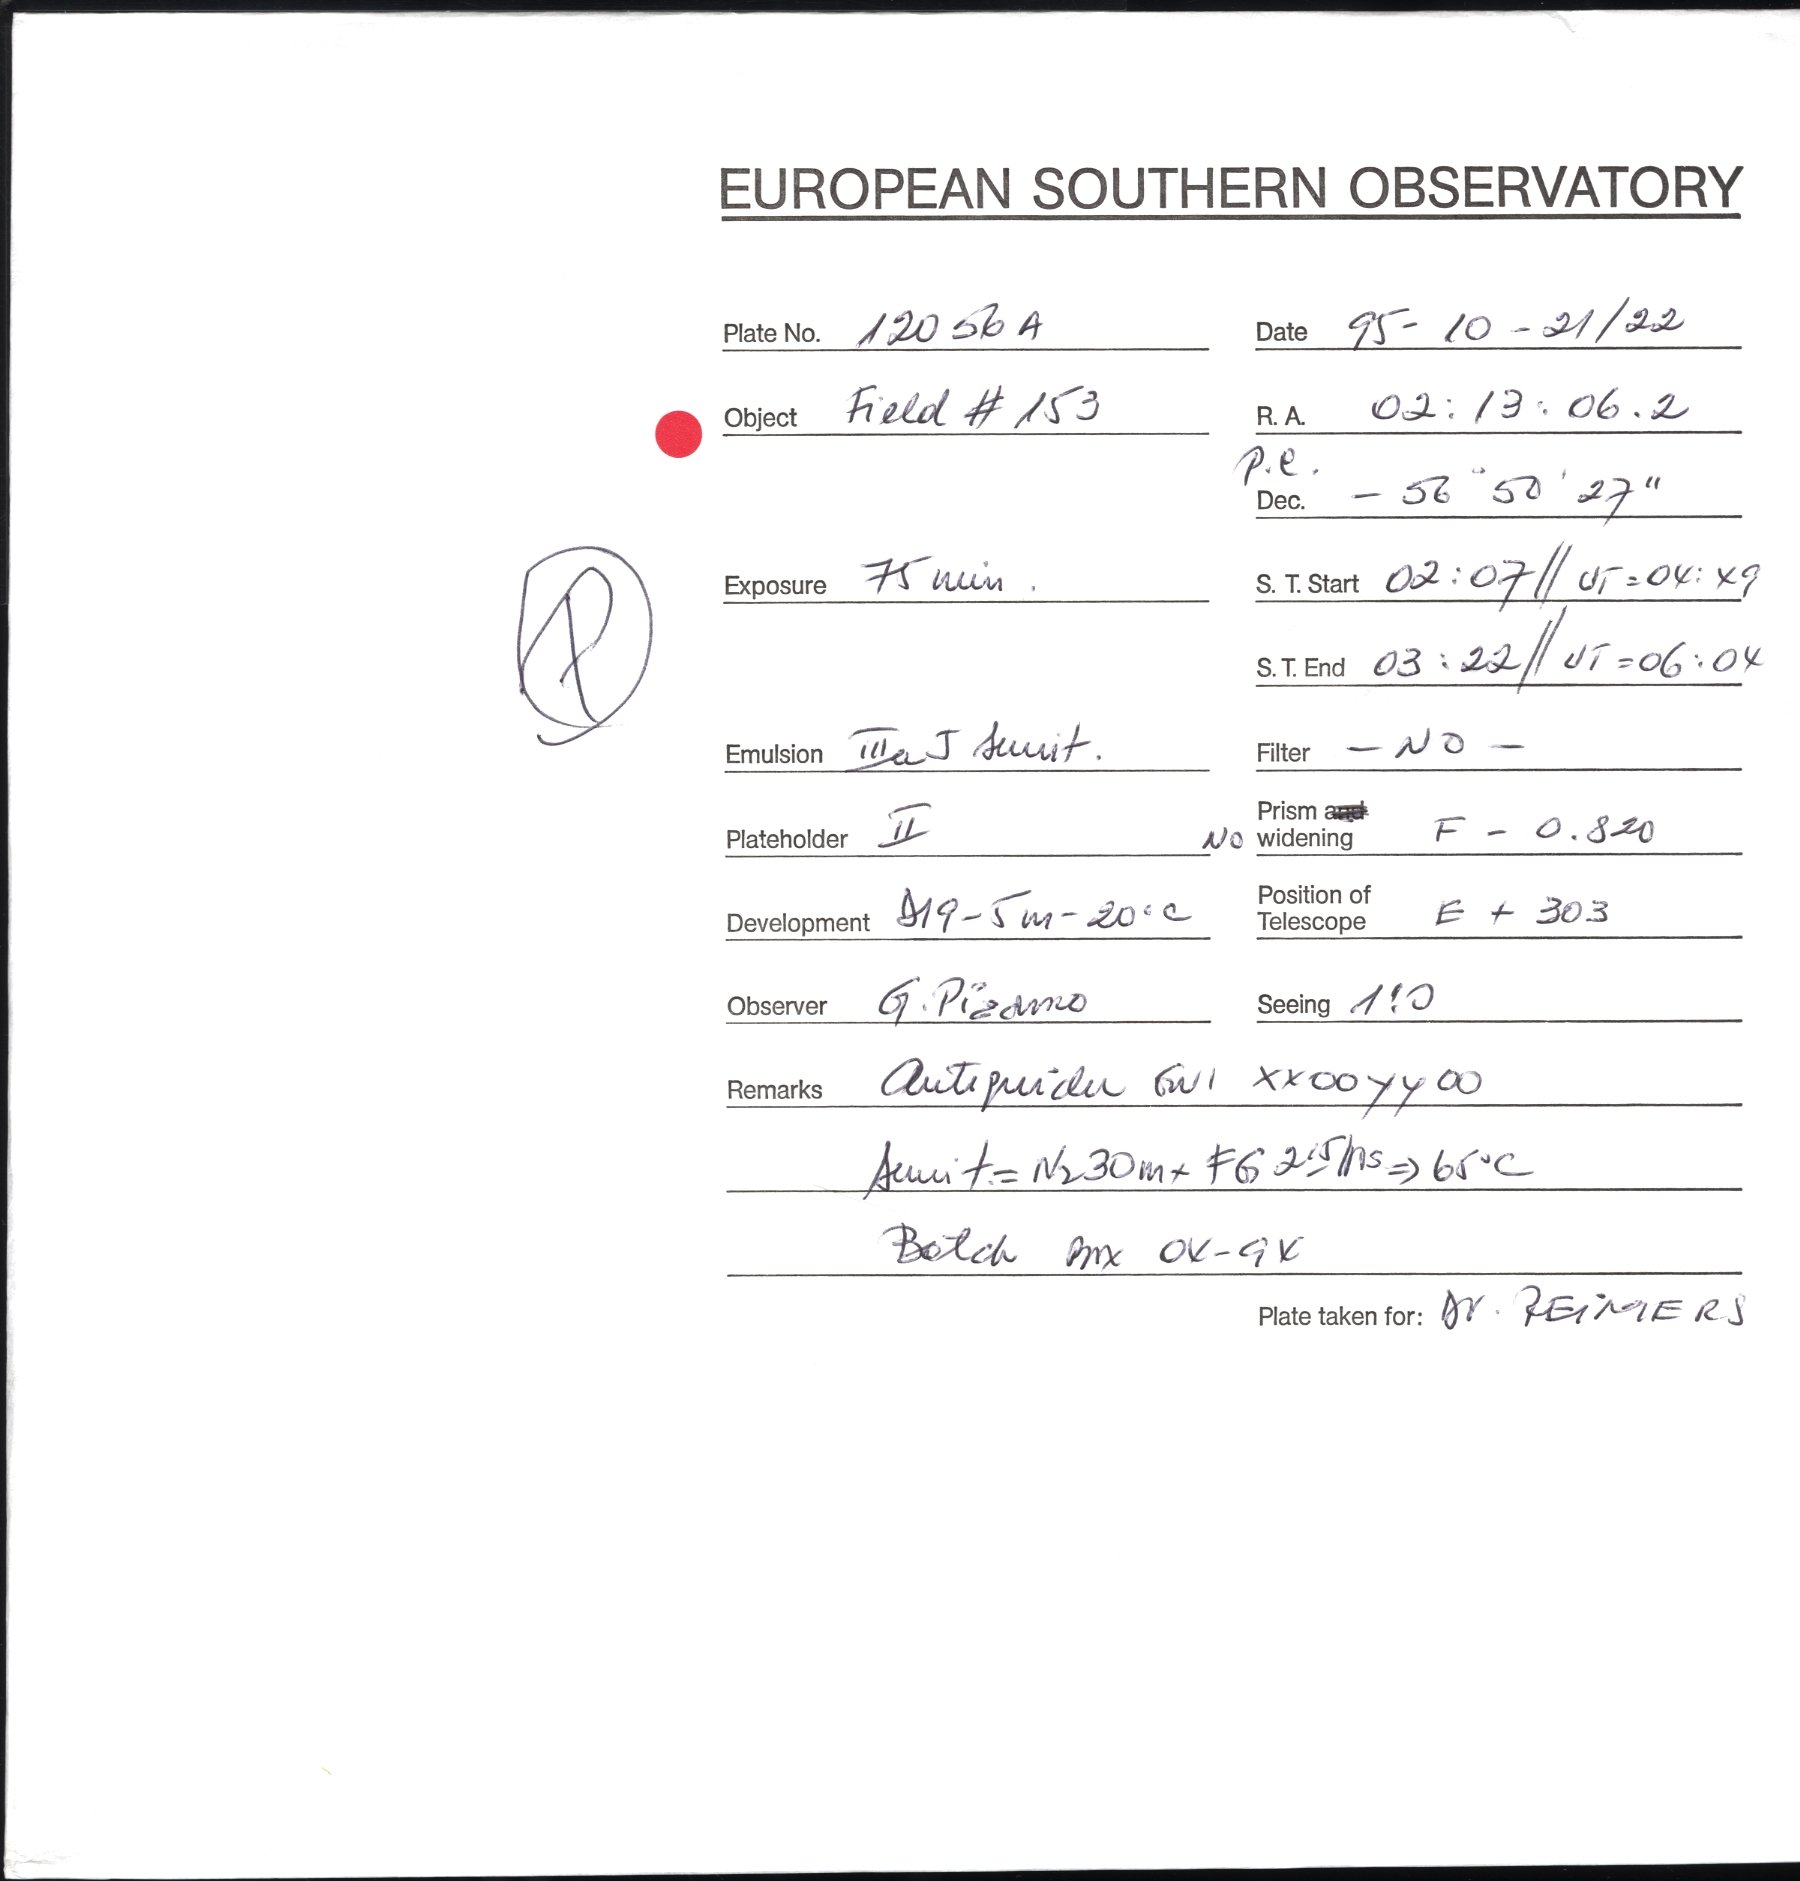 EUROPEAN SOUTHERN OBSERVATORY
Plate No. 12056A Date 95-10-21/22
Object Field # 153 R. A. 02:13:06.2
P.e.
Dec. - 56° 50' 27"
Exposure 75 min. S. T. Start 02:07// UT=04:49
S. T. End 03:22// UT=06:04
Emulsion IIIaJ Filter - NO -
Plateholder II NO Prism and widening F - 0.820
Development D19-5m-20°C Position of Telescope E + 303
Observer G. Pizarro Seeing 1".0
Remarks XX00YY00
N2 30m+ FG ⇒ 65°C
Batch
Plate taken for: Dr. REIMERS